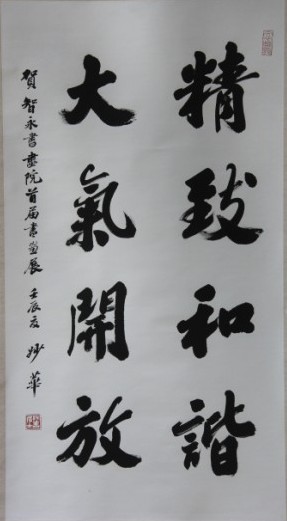 精致和諧
大氣開放
賀智永書畫院首届書畫展 壬辰夏 妙華